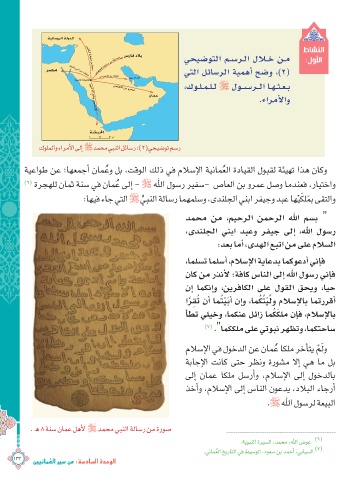 النشاط
الأول:
من خلال الرسم التوضيحي
(٢)، وضح أهمية الرسائل التي
بعثها الرسول ﷺ للملوك،
والأمراء.
الدولة البيزنطية
بلاد فارس
مصر
عمان
رسم توضيحي(٢): رسائل النبي محمد ﷺ إلى الأمراء والملوك
وكان هذا تهيئة لقبول القيادة العُمانية الإسلام في ذلك الوقت، بل وعُمان أجمعها: عن طواعية
واختيار، فعندما وصل عمرو بن العاص -سفير رسول الله ﷺ - إلى عُمان في سنة ثمان للهجرة (٦)
والتقى بمَلِكَيْها عبد وجيفر ابني الجلندى، وسلمهما رسالة النبيِّ ﷺ التي جاء فيها:
" بسم الله الرحمن الرحيم، من محمد
رسول الله، إلى جيفر وعبد ابني الجلندى،
السلام على من اتبع الهدى، أما بعد:
فإني أدعوكما بدعاية الإسلام، أسلما تسلما،
فإني رسول الله إلى الناس كافة؛ لأنذر من كان
حيا، ويحق القول على الكافرين، وإنكما إن
أقررتما بالإسلام وَلَّيتُكُما، وإن أَبَيْتُما أن تُقرَّا
بالإسلام، فإن ملككما زائل عنكما، وخيلي تطأ
ساحتكما، وتظهر نبوتي على ملككما". (٧)
ولَمْ يتأخر ملكا عُمان عن الدخول في الإسلام
بل ما هي إلا مشورة ونظر حتى كانت الإجابة
بالدخول إلى الإسلام، وأرسل ملكا عمان إلى
أرجاء البلاد، يدعون الناس إلى الإسلام، وأخذ
البيعة لرسول الله ﷺ.
صورة من رسالة النبي محمد ﷺ لأهل عمان سنة ٨ هـ.
(٦) عوض الله، محمد، السيرة النبوية.
(٧) السيابي، أحمد بن سعود، الوسيط في التاريخ العُماني.
الوحدة السادسة: من سير العُمانيين
١٣٣